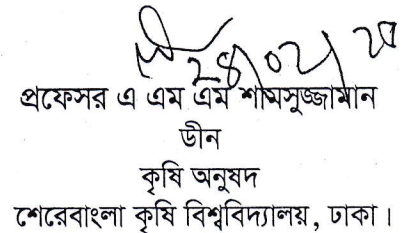 28/02/20
প্রফেসর এ এম এম শামসুজ্জামান
ডীন
কৃষি অনুষদ
শেরেবাংলা কৃষি বিশ্ববিদ্যালয়, ঢাকা।